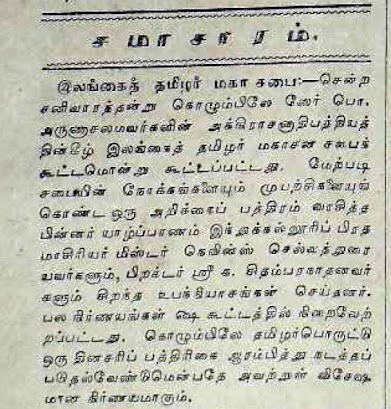 சமாசாரம்.
இலங்கைத் தமிழர் மகா சபை:—சென்ற
சனிவாரத்தன்று கொழும்பிலே ஸேர் பொ.
அருணாசலமவர்களின் அக்கிராசனாதிபத்தியத்
தின்கீழ் இலங்கைத் தமிழர் மகாசன சபைக்
கூட்டமொன்று கூட்டப்பட்டது. மேற்படி
சபையின் நோக்கங்களையும் முயற்சிகளையுங்
கொண்ட ஒரு அறிக்கைப் பத்திரம் வாசித்த
பின்னர் யாழ்ப்பாணம் இந்துக்கல்லூரிப் பிரத
மாசிரியர் மிஸ்டர் நெவின்ஸ் செல்வத்துரை
யவர்களும், பிறக்டர் ஸ்ரீ க. சிதம்பரநாதனவர்
களும் சிறந்த உபந்நியாசங்கள் செய்தனர்.
பல நிர்ணயங்கள் ஷெ கூட்டத்தில் நிறைவேற்
றப்பட்டது. கொழும்பிலே தமிழர்பொருட்டு
ஒரு தினசரிப் பத்திரிகை ஆரம்பித்து நடத்தப்
படுதல்வேண்டுமென்பதே அவற்றுள் விசேஷ
மான நிர்ணயமாகும்.